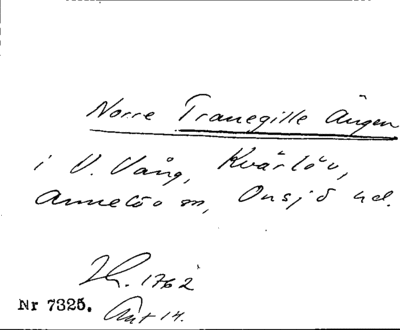 Norre Tranegille Ängen
i V. Vång, Kvärlöv,
Annelöv sn, Onsjö hd.
Lh. 1762
Nr 7325. Akt 14.